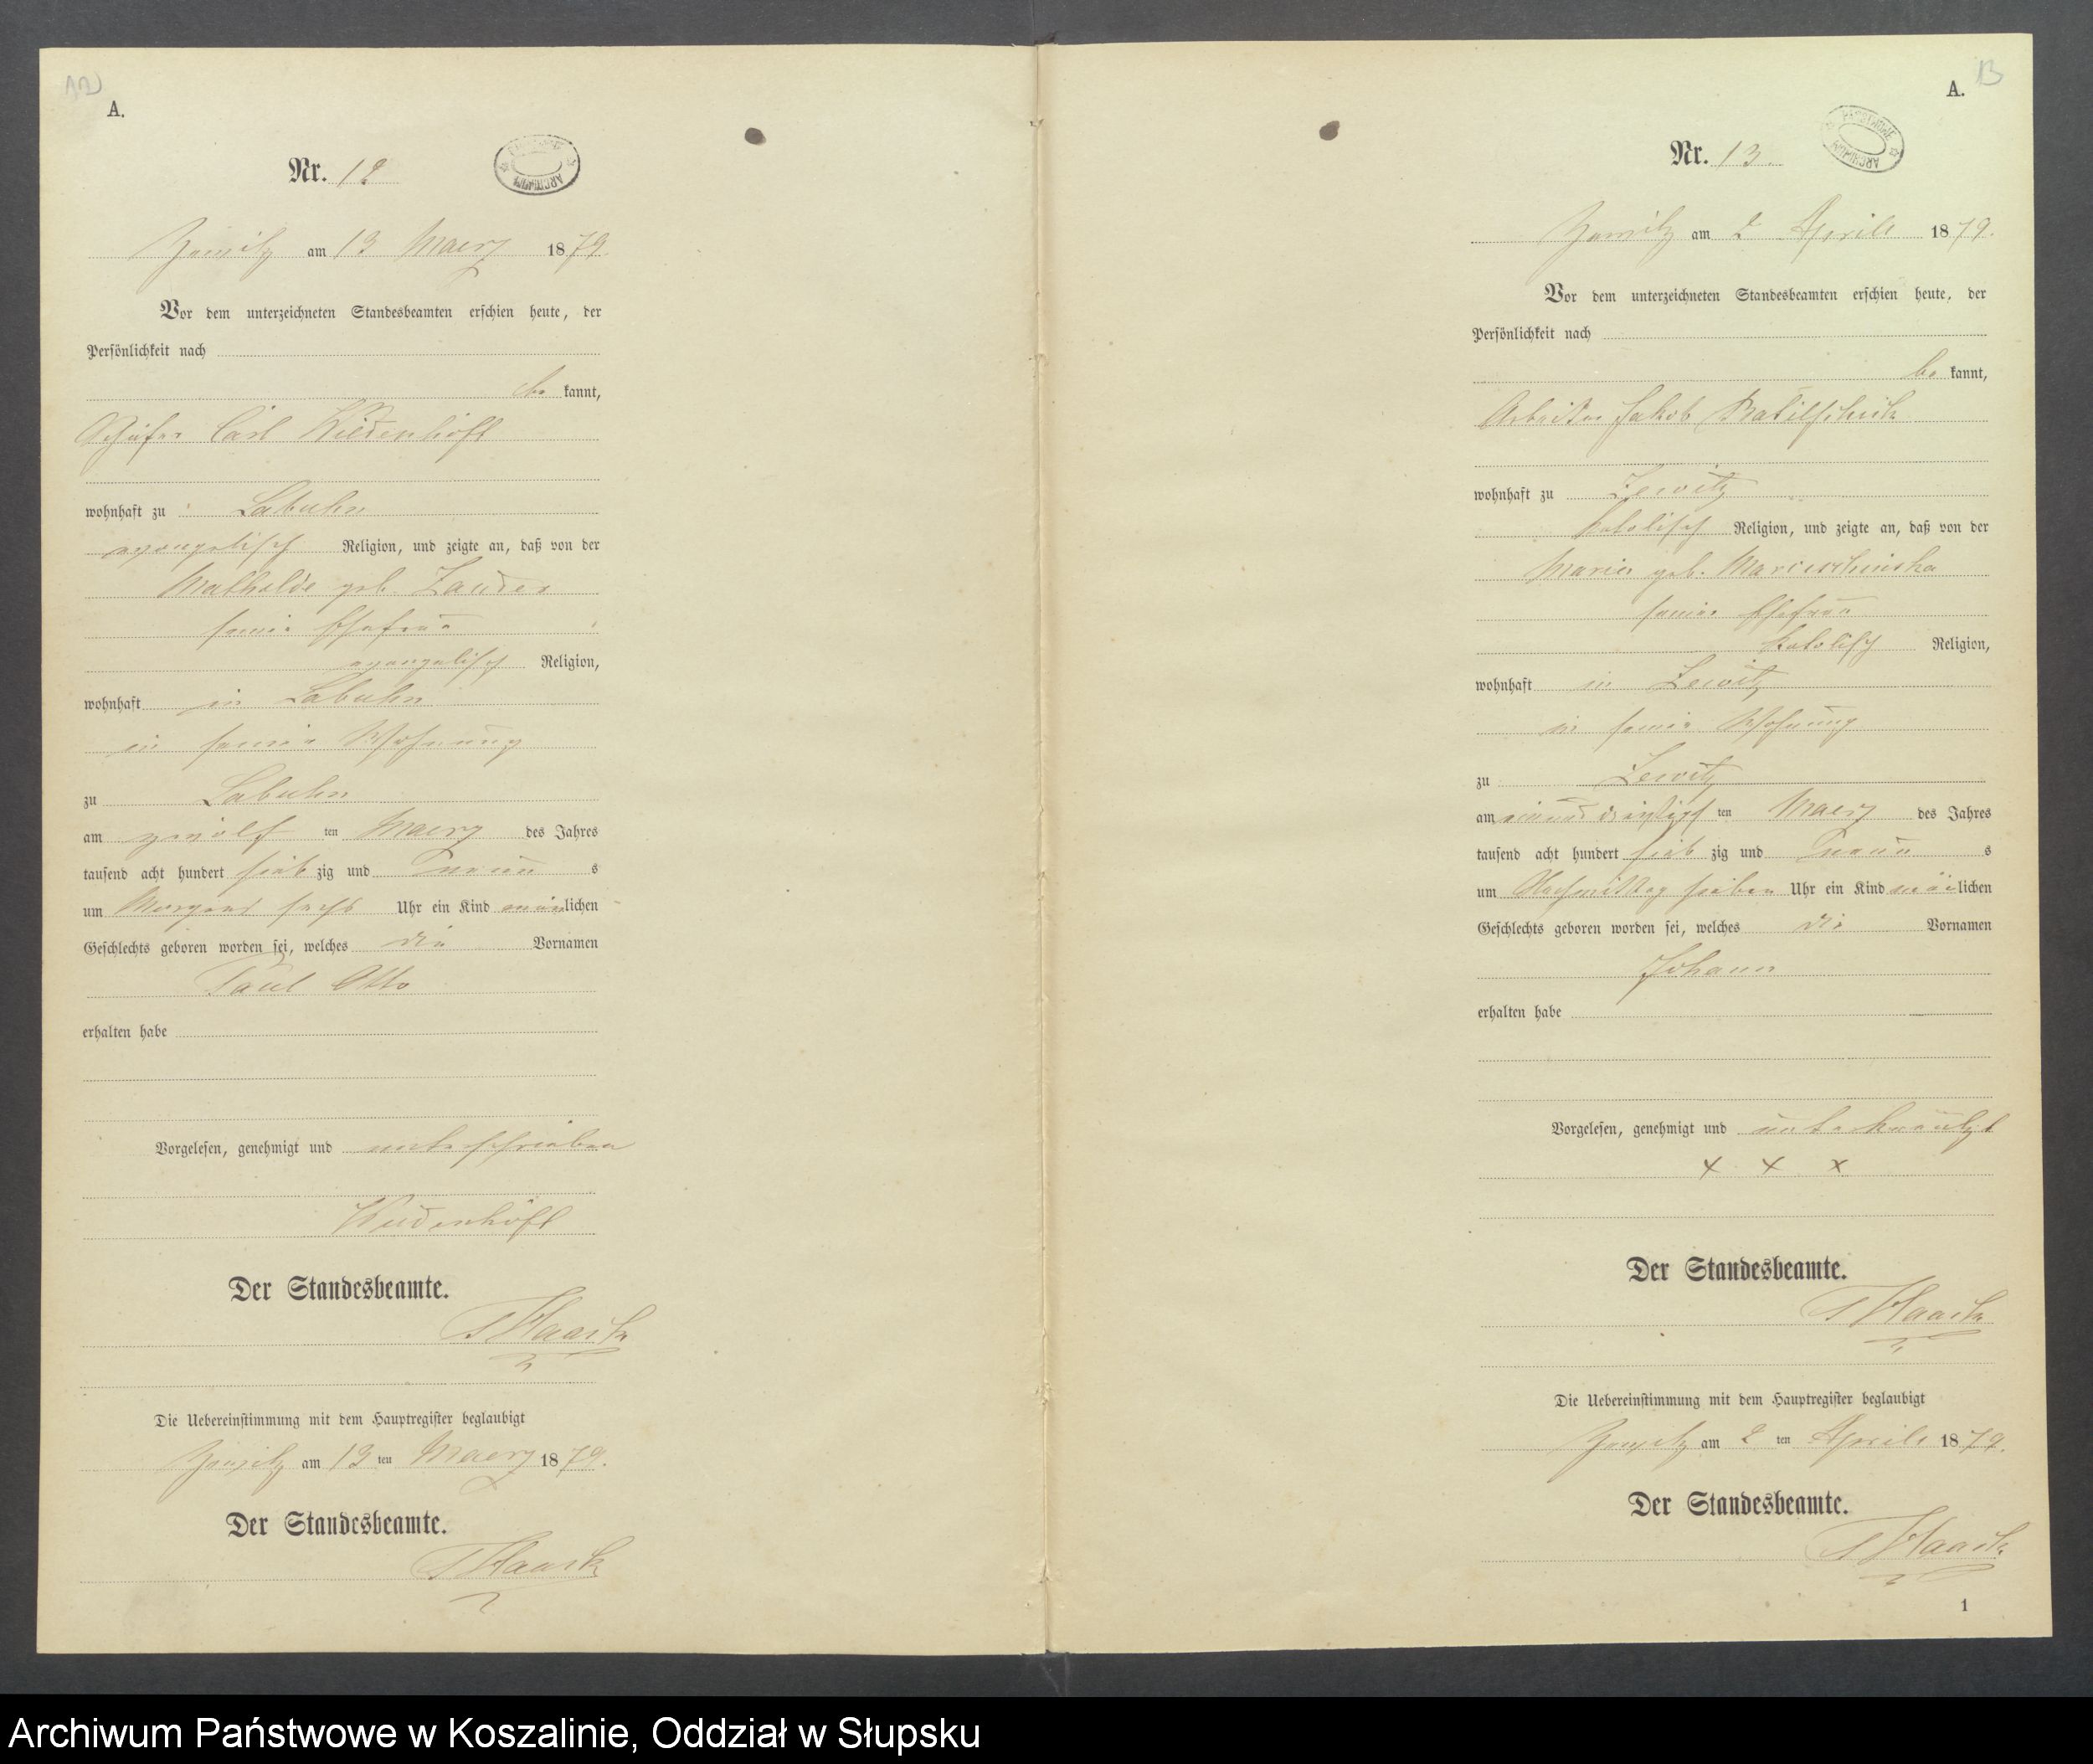 A.
Nr. 12
am 13 Maerz 1879.
Vor dem unterzeichneten Standesbeamten erschien heute, der
Persönlichkeit nach
be kannt,
Schäfer Carl
wohnhaft zu Labuhn
evangelisch Religion, und zeigte an, daß von der
Mathilde geb. Zander
seine Ehefrau
evangelisch Religion,
wohnhaft in Labuhn
in seine Wohnung
zu Labuhn
am zwölf ten Maerz des Jahres
tausend acht hundert sieb zig und neun s
um Morgens sechs Uhr ein Kind män lichen
Geschlechts geboren worden sei, welches die Vornamen
Paul Otto
erhalten habe
Vorgelesen, genehmigt und unterschrieben
Der Standesbeamte.
Haack
Die Uebereinstimmung mit dem Hauptregister beglaubigt
am 13 ten Maerz 1879.
Der Standesbeamte.
Haack
13
A.
Nr. 13.
am 2 Aprill 1879.
Vor dem unterzeichneten Standesbeamten erschien heute, der
Persönlichkeit nach
be kannt,
Arbeiter Jakob
wohnhaft zu Zewitz
katolisch Religion, und zeigte an, daß von der
Marie geb.
seine Ehefrau
katolisch Religion,
wohnhaft in Zewitz
in seine Wohnung
zu Zewitz
am einunddreißigs ten Maerz des Jahres
tausend acht hundert sieb zig und neun s
um Nachmittag sieben Uhr ein Kind män lichen
Geschlechts geboren worden sei, welches die Vornamen
Johann
erhalten habe
Vorgelesen, genehmigt und unterkreuzt
x x x
Der Standesbeamte.
Haack
Die Uebereinstimmung mit dem Hauptregister beglaubigt
am 2 ten Aprill 1879.
Der Standesbeamte.
Haack
1
Archiwum Państwowe w Koszalinie, Oddział w Słupsku